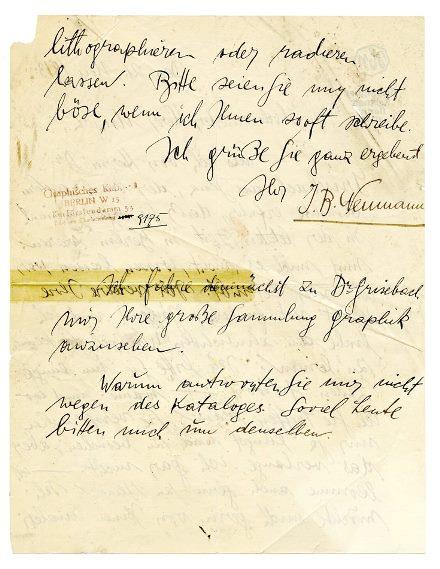 lithographieren oder radieren
lassen. Bitte seien Sie mir nicht
böse, wenn ich Ihnen so oft schreibe.
Ich grüße Sie ganz ergebenst
Ihr J. B. Neumann
Graphisches Kabinett
BERLIN W 15
Kurfürstendamm 33
9175
Ich fahre demnächst zu Dr Grisebach
mir Ihre große Sammlung Graphik
anzusehen.
Warum antworten Sie mir nicht
wegen des Kataloges. Soviel Leute
bitten mich um denselben.